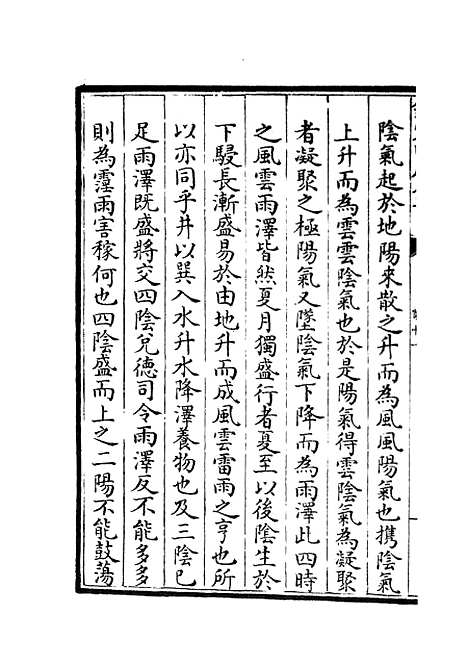 陰氣起於地陽来散之升而為風風陽氣也携陰氣
上升而為雲雲陰氣也於是陽氣得雲陰氣為凝聚
者凝聚之極陽氣又墜陰氣下降而為雨澤此四時
之風雲雨澤皆然夏月獨盛行者夏至以後陰生於
下駸長漸盛易於由地升而成風雲雷雨之亨也所
以亦同乎井以巽入水升水降澤養物也及三陰已
足雨澤既盛將交四陰兌德司令雨澤反不能多多
則為霪雨害稼何也四陰盛而上之二陽不能鼓蕩